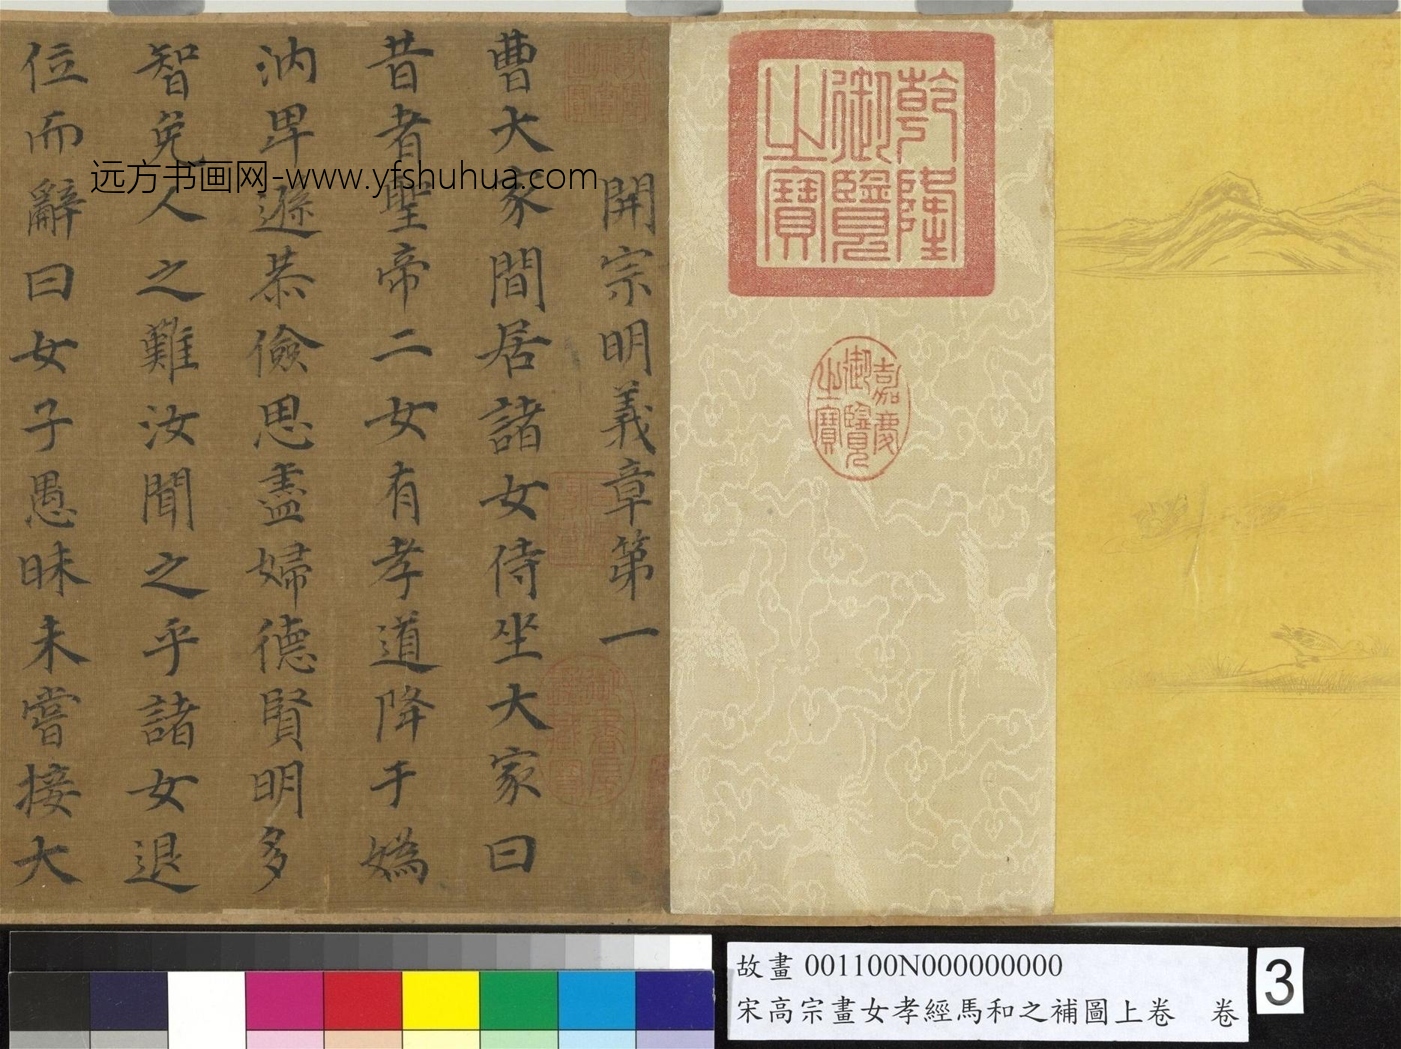 乾隆
御覽
之寶
嘉慶
御覽
之寶
開宗明義章第一
曹大家閒居諸女侍坐大家曰
昔者聖帝二女有孝道降于媯
汭卑遜恭儉思盡婦德賢明多
智免人之難汝聞之乎諸女退
位而辭曰女子愚昧未嘗接大
远方书画网-www.yfshuhua.com
故畫 001100N000000000
宋高宗畫女孝經馬和之補圖上卷 卷
3